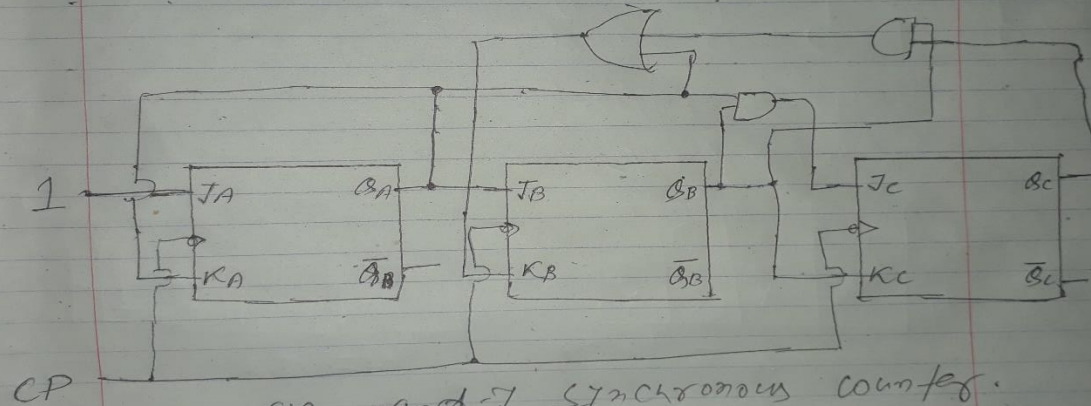 1
JA QA
KA Q̅B
JB QB
KB Q̅B
JC QC
KC Q̅C
CP
mod-7 synchronous counter.